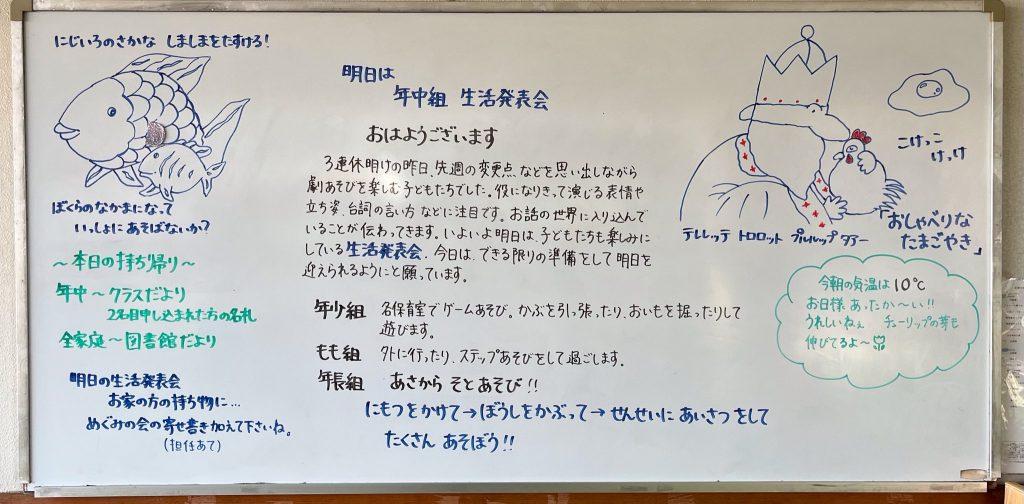 にじいろのさかな しましまをたすける!
ぼくらのなかまになって
いっしょにあそばないか?
~本日の持ち帰り~
年中~クラスだより
2名目申し込まれた方の名札
全家庭~図書館だより
明日の生活発表会
お家の方の持ち物に…
めぐみの会の寄せ書き加えて下さいね。
(担任あて)
明日は
年中組 生活発表会
おはようございます
3連休明けの昨日、先週の変更点などを思い出しながら
劇あそびを楽しむ子どもたちでした。役になりきって演じる表情や
立ち姿、台詞の言い方などに注目です。お話の世界に入り込んで
いることが伝わってきます。いよいよ明日は、子どもたちも楽しみに
している生活発表会。今日は、できる限りの準備をして明日を
迎えられるようにと願っています。
年少組 各保育室でゲームあそび。かぶを引っ張ったり、おいもを掘ったりして
遊びます。
もも組 外に行ったり、ステップあそびをして過ごします。
年長組 あさから そとあそび!!
にもつをかけて→ぼうしをかぶって→せんせいに あいさつ をして
たくさん あそぼう!!
こけっこ
けっけ
「おしゃべりな
たまごやき」
テレレッテ トロロット プルルップ タアー
今朝の気温は10℃
お日様 あったか~い!!
うれしいねぇ チューリップの芽も
伸びてるよ~